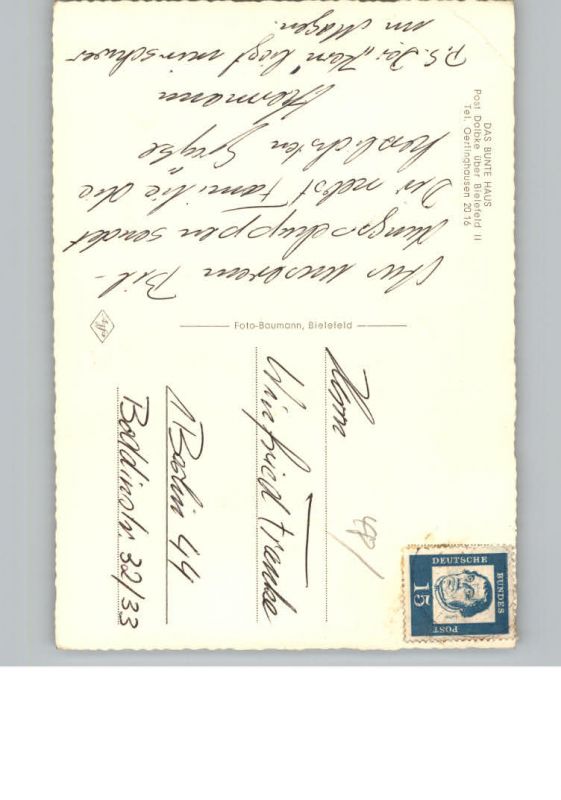 DAS BUNTE HAUS
Post Dalbke über Bielefeld II
Tel. Oerlinghausen 2016
Aus unserem Bil-
dungsschuppen sendet
Dir nebst Familie die
herzlichsten Grüße
Hermann
P.S. Der „Korn" liegt mir schwer
im Magen.
Foto-Baumann, Bielefeld
Agfa
Herrn
Winfried Franke
1 Berlin 44
Boddinstr. 32/33
DEUTSCHE
BUNDES
POST
15